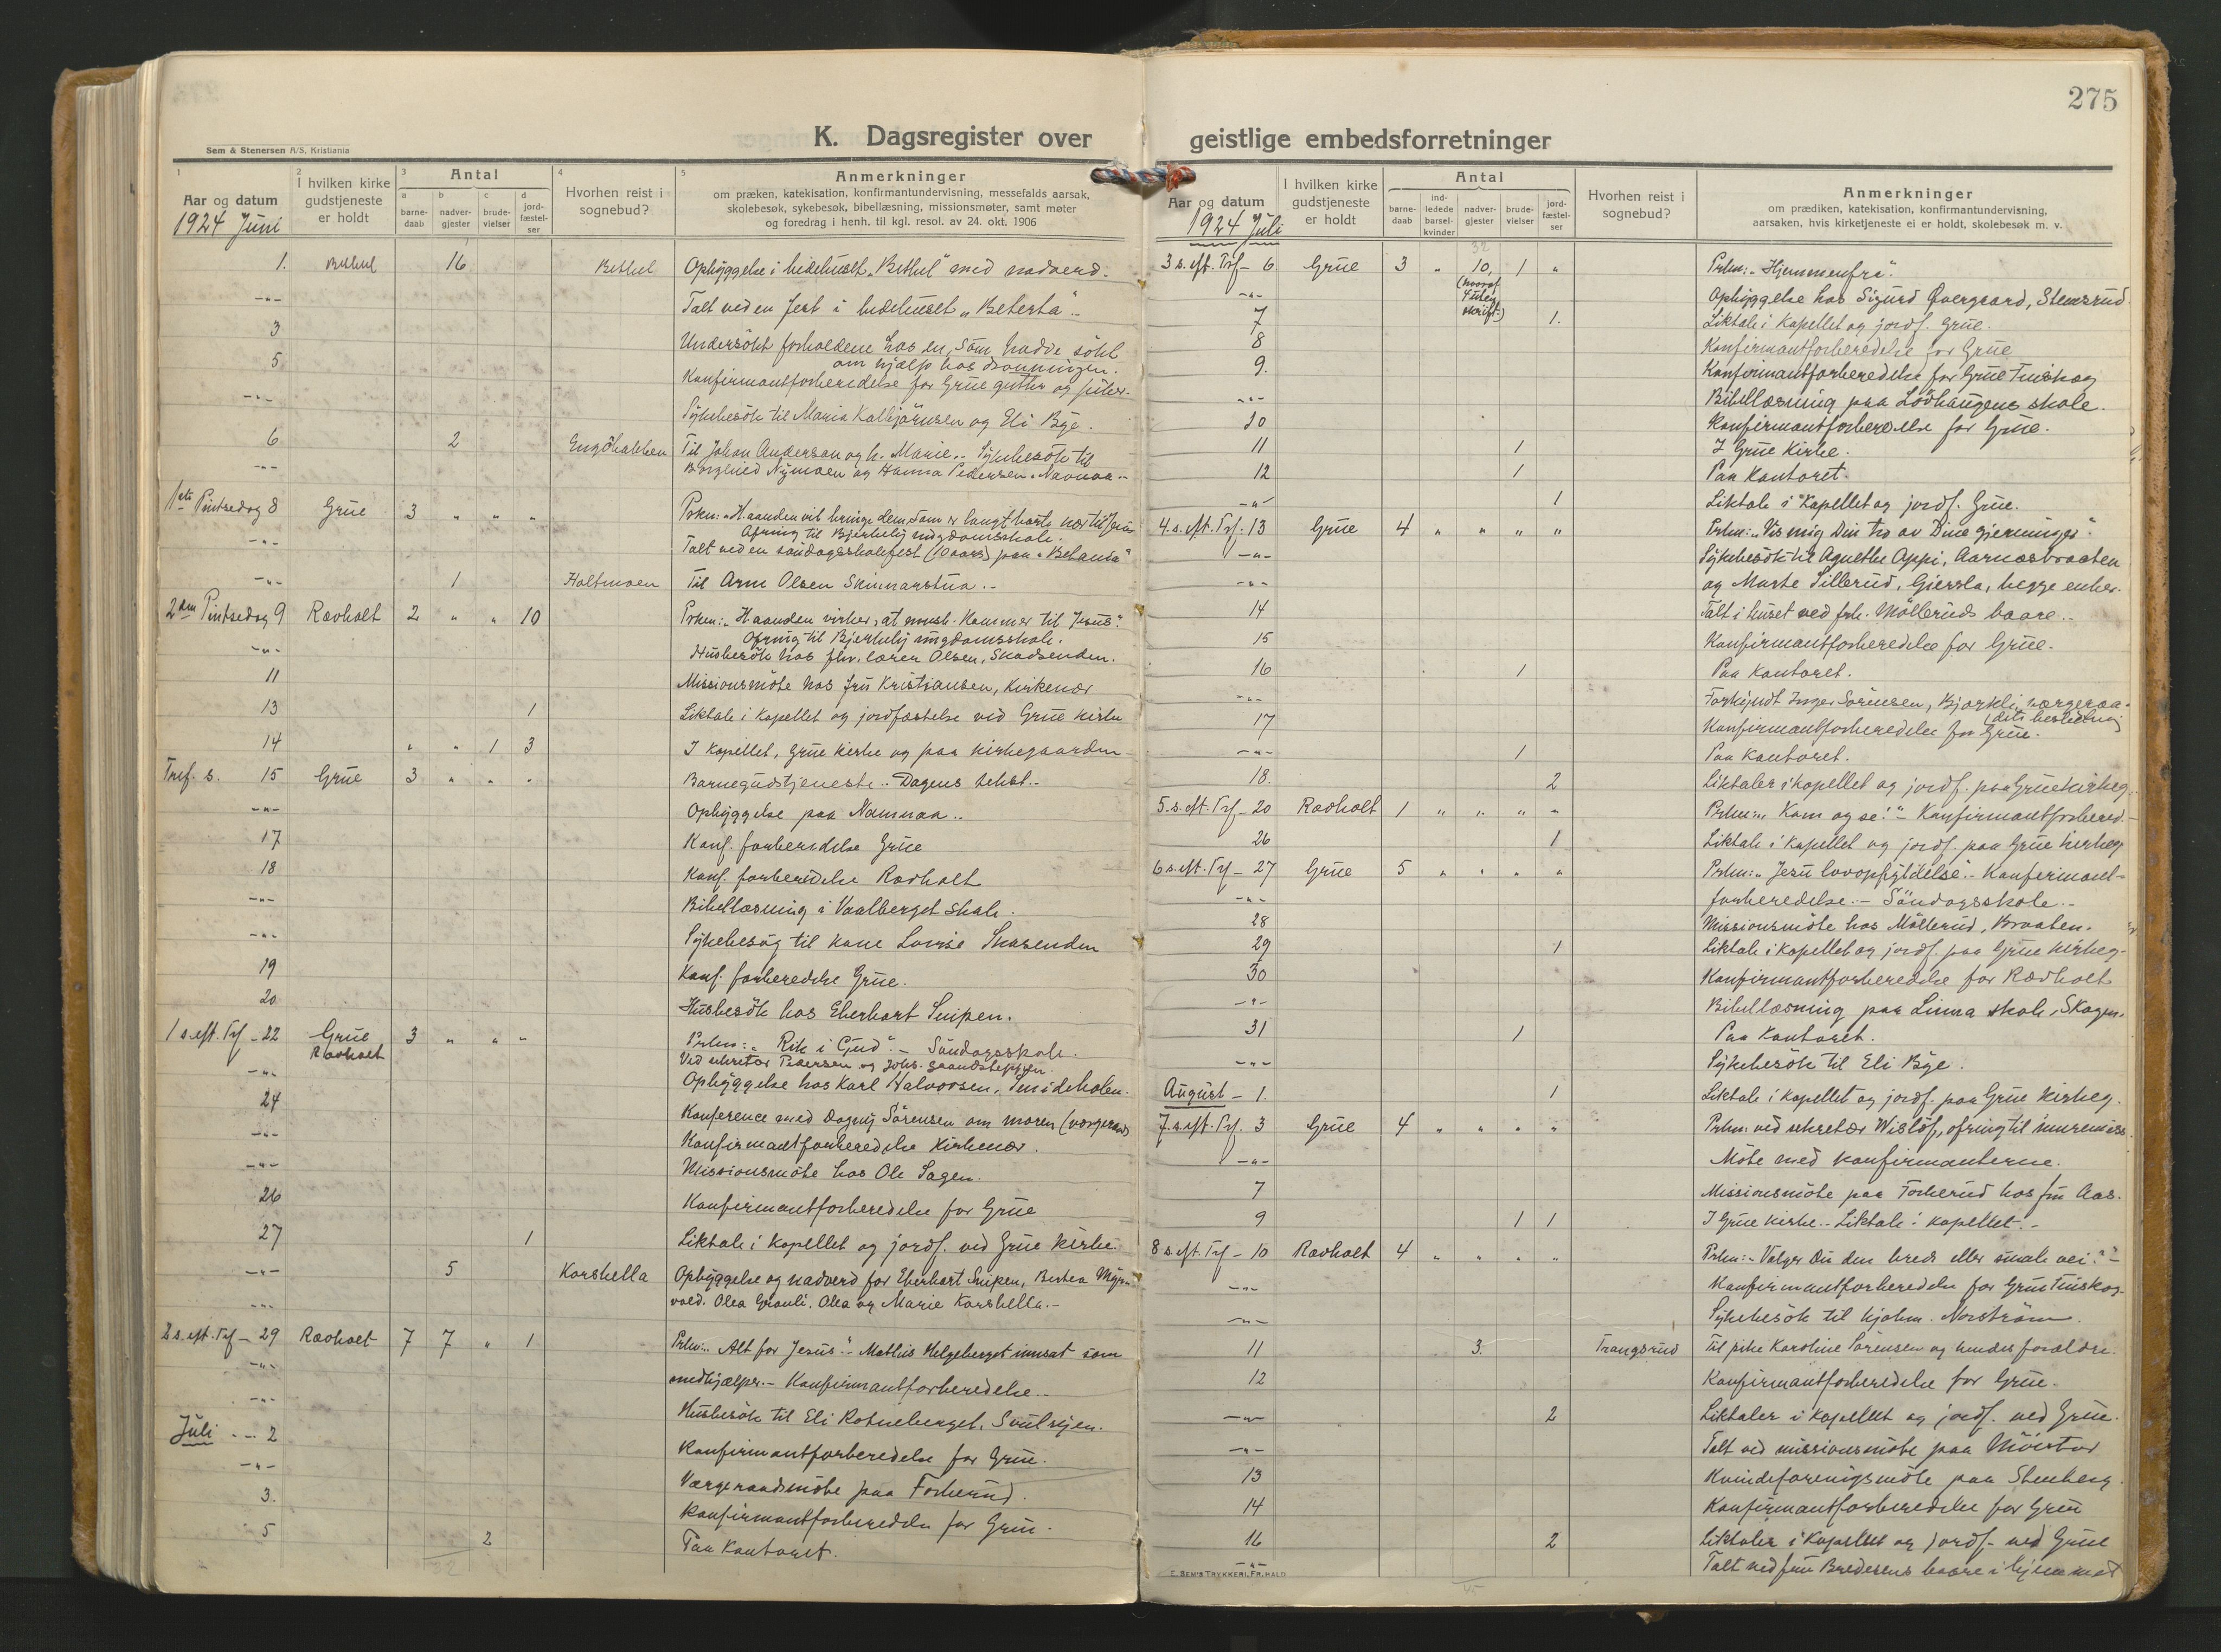 275
K. Dagsregister over geistlige embedsforretninger
Sem & Stenersen A/S, Kristiania
1 Aar og datum
2 I hvilken kirke gudstjeneste er holdt
3 Antal
a barnedaab
b nadvergjester
c brudevielser
d jordfæstelser
4 Hvorhen reist i sognebud?
5 Anmerkninger
om præken, katekisation, konfirmantundervisning, messefalds aarsak,
skolebesøk, sykebesøk, bibellæsning, missionsmøter, samt møter
og foredrag i henh. til kgl. resol. av 24. okt. 1906
1924 Juni
1. Bethel 16 Bethel Opbyggelse i bedehuset „Bethel" med nadverd.
-"- Talt ved en fest i bedehuset „Betesta".-
3 Undersökt forholdene hos en, som hadde sökt
om hjælp hos dronningen.
5 Konfirmantforberedelse for Grue gutter og piker.
-"- Sykebesök til Maria Kalbjörnsen og Eli Bye.
6 2 Til Johan Anderson og h. Marie.- Sykebesök til
-"- Nymoen og Hanna Pedersen, Navnaa.-
1ste Pintsedag 8 Grue 3 " " " Prken: „H. aanden vil bringe dem, som er langt borte nær til Jesus
Ofring til Bjerkely ungdomsskole.
-"- Talt ved en söndagsskolefest (10 aars) paa „Betania"
-"- 1 Holtmoen Til Arne Olsen Skinnarstua.-
2den Pintsedag 9 Rævholt 2 " " 10 Prken: „H. aanden virker, at mnsk. kommer til Jesus".
Ofring til Bjerkely ungdomsskole.
-"- Husbesök hos fhv. lærer Olsen, Skadsenden.
11 Missionsmöte hos fru Kristiansen, Kirkenær
13 1 Liktale i kapellet og jordfæstelse ved Grue kirke
14 " " 1 3 I kapellet, Grue kirke og paa kirkegaarden
Tref. s. 15 Grue 3 " " " Barnegudstjeneste.- Dagens tekst.-
-"- Opbyggelse paa Namnaa..
17 Konf. forberedelse Grue
18 Konf. forberedelse Rævholt
-"- Bibellæsning i Vaalberget skole.
-"- Sykebesøg til kone Lovise Skasenden
19 Konf. forberedelse Grue.
20 Husbesök hos Eberhart Snipen.
1 s. eft. Trf - 22 Grue 3 " " " Prken: „Rik i Gud".- Söndagsskole.
Rævholt Ved sekretær Pedersen og Johs.
-"- Opbyggelse hos Karl Halvorsen, Smideholen.
24 Konference med Dagny Sörensen om moren (vergeraad)
-"- Konfirmantforberedelse Kirkenær.
-"- Missionsmöte hos Ole Sagen.
26 Konfirmantforberedelse for Grue
27 1 Liktale i kapellet og jordf. ved Grue kirke.
-"- 5 Korshella Opbyggelse og nadverd for Eberhart Snipen, Bertea Myr-
-"- vold, Olea Granli, Olea og Marie Korshella.-
2 s. eft. Trf - 29 Rævholt 7 7 " 1 Prken: „Alt for Jesus".- Mathis Helgeberget innsat som
-"- medhjælper.- Konfirmantforberedelse.-
-"- Husbesök til Eli Rotneberget,
Juli - 2 Konfirmantforberedelse for Grue.
-"- Værgeraadsmöte paa Forberud.
3. Konfirmantforberedelse for Grue.
5 2 Paa kontoret.
32
Aar og datum
I hvilken kirke gudstjeneste er holdt
Antal
barnedaab
indledede barselkvinder
nadvergjester
brudevielser
jordfæstelser
Hvorhen reist i sognebud?
Anmerkninger
om prædiken, katekisation, konfirmantundervisning,
aarsaken, hvis kirketjeneste ei er holdt, skolebesøk m. v.
1924 Juli
32
3 s. eft. Trf - 6 Grue 3 " 10, 1 " Prken: „Hjemmenfra".
-"- (hvoraf Opbyggelse hos Sigurd Övergaard, Stemsrud.
7 skrift.) 1. Liktale i kapellet og jordf. Grue.
8 Konfirmantforberedelse for Grue
9. Konfirmantforberedelse for Grue Finskog
-"- Bibellæsning paa Lövhaugens skole.
10 Konfirmantforberedelse for Grue.
11 1 I Grue Kirke.
12 1 Paa Kontoret.
-"- 1 Liktale i kapellet og jordf. Grue.
4. s. eft. Trf. 13 Grue 4 " " " " Prken: „Vis mig Din tro av Dine gjerninger".
-"- Sykebesök til Agnethe Oppi, Aarnæsbraaten
-"- og Marte Sillerud, Gjersla, begge enker.
14 Talt i huset ved frk. Mölleruds baare.-
15 Konfirmantforberedelse for Grue.
16 1 Paa kontoret.
-"- Forkyndt Inger Sörensen, Bjorkli, værgeraa-
(dets beslutning
17 Konfirmantforberedelse for Grue.
-"- 1 Paa Kontoret.
18. 2 Liktaler i kapellet og jordf. paa Grue kirkeg.
5. s. eft. Trf - 20 Rævholt 1 " " " " Prken: „Kom og se!"- Konfirmantforbered.-
26 1 Liktale i kapellet og jordf. paa Grue kirkeg
6 s. eft. Trf - 27 Grue 5 " " " " Prken: „Jesu lovopfyldelse".- Konfirmant-
-"- forberedelse.- Söndagsskole.-
28 Missionsmöte hos Möllerud, Braaten.
29 1 Liktale i kapellet og jordf. paa Grue kirkeg.
30 Konfirmantforberedelse for Rævholt
-"- Bibellæsning paa Linna skole, Skogen.
31 1 Paa Kontoret.
-"- Sykebesök til Eli Bye.
August - 1. 1 Liktale i kapellet og jordf. paa Grue kirkeg.
7. s. eft. Trf. 3 Grue 4 " " " " Prken: ved sekretær Wislöf, ofring til inuremiss.
-"- Möte med konfirmanterne.
7 Missionsmöte paa Forberud hos fru Aas.
9 1 1 I Grue kirke.- Liktale i kapellet.-
8 s. eft. Trf - 10 Rævholt 4 " " " " Prken: „Velger Du den brede eller smale vei?"-
-"- Konfirmantforberedelse for Grue Finskog.
-"- Sykebesök til Norström.
11 3. Trangsrud Til pike Karoline Sörensen og hendes forældre.
12 Konfirmantforberedelse for Grue.
-"- 2 Liktaler i kapellet og jordf. ved Grue.
-"- Talt ved missionsmöte paa
13 Kvindeforenigsmöte paa Stenberg
14 Konfirmantforberedelse for Grue
16 2 Liktaler i kapellet og jordf. ved Grue
-"- Talt ved fru Bredesens baare i hjemmet
E. Sem's Trykkeri, Fr.hald